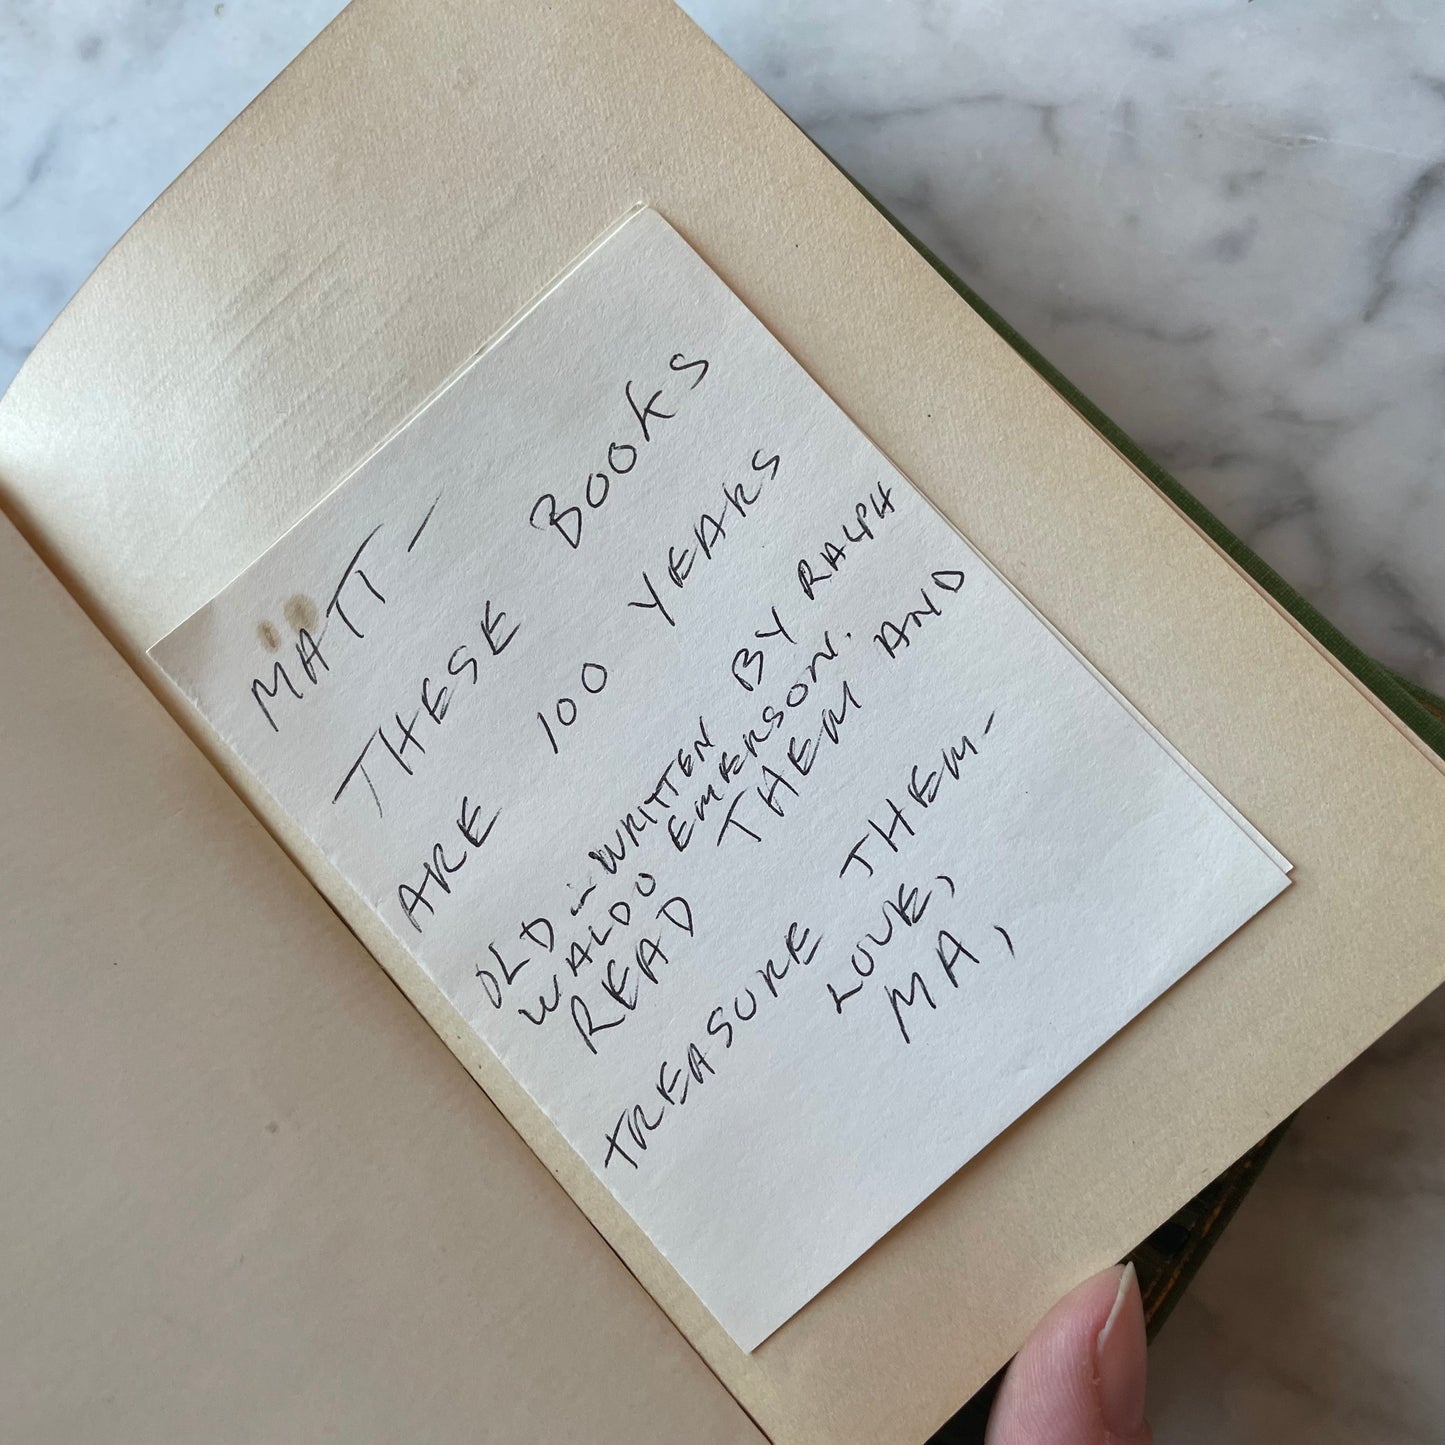 MATT -
THESE BOOKS
ARE 100 YEARS
OLD - WRITTEN BY RALPH
WALDO EMERSON.
READ THEM AND
TREASURE THEM -
LOVE,
MA,